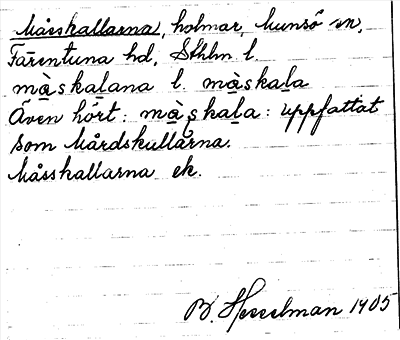 Måsskallarna, holmar, Munsö sn,
Färentuna hd, Sthlm l.
màskalana l. màskala
Även hört: màskala: uppfattat
som Mårdskullarna.
Måsskallarna ek.
B. Hesselman 1905